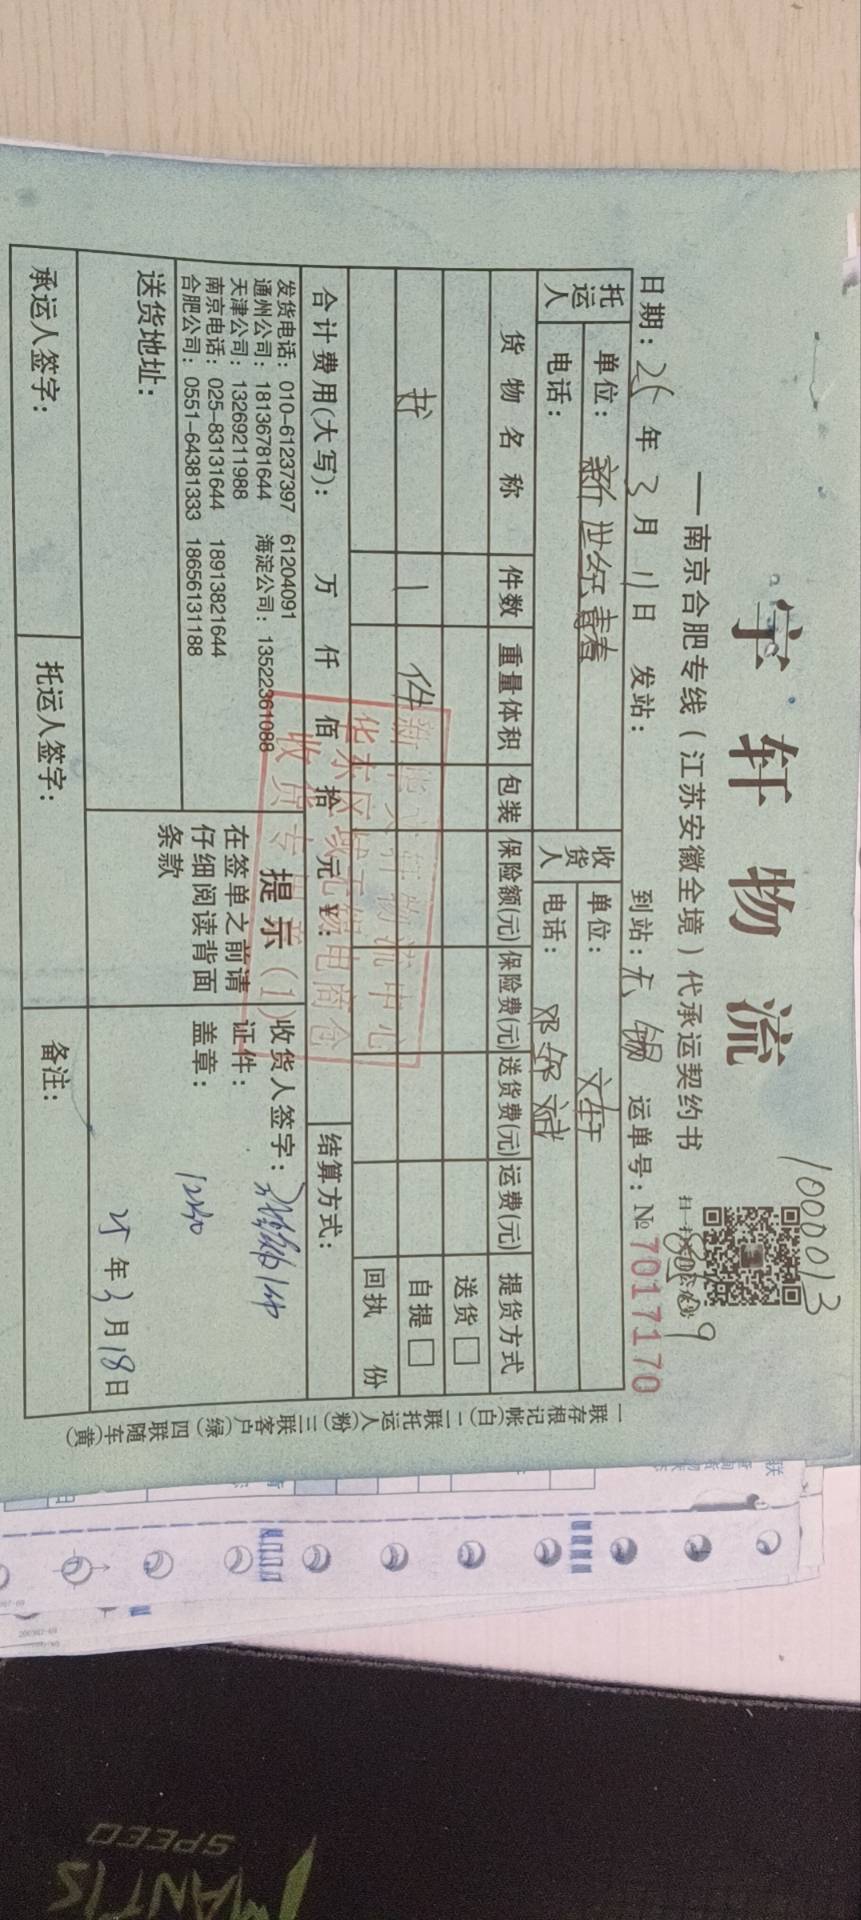 宇轩物流
—南京合肥专线（江苏安徽全境）代承运契约书
1000013
扫一扫
日期：25年3月11日 发站： 到站：无锡 运单号：№7017170
托运人 单位：新世纪青春
电话：
收货人 单位：文轩
电话：邓
货物名称 件数 重量体积 包装 保险额(元) 保险费(元) 送货费(元) 运费(元) 提货方式
送货□
书 1 件 自提□
回执 份
合计费用(大写)： 万 仟 佰 拾 元 ¥： 结算方式：
新华文轩物流中心
华东区域无锡电商仓
收货专用章(1)
发货电话：010-61237397 61204091
通州公司：18136781644 海淀公司：13522361088
天津公司：13269211988
南京电话：025-83131644 18913821644
合肥公司：0551-64381333 18656131188
提示
在签单之前请
仔细阅读背面
条款
收货人签字：
证件：
盖章：
25年3月18日
送货地址：
承运人签字： 托运人签字： 备注：
一联存根记帐(白)二联托运人(粉)三联客户(绿)四联随车(黄)
MANTIS
SPEED